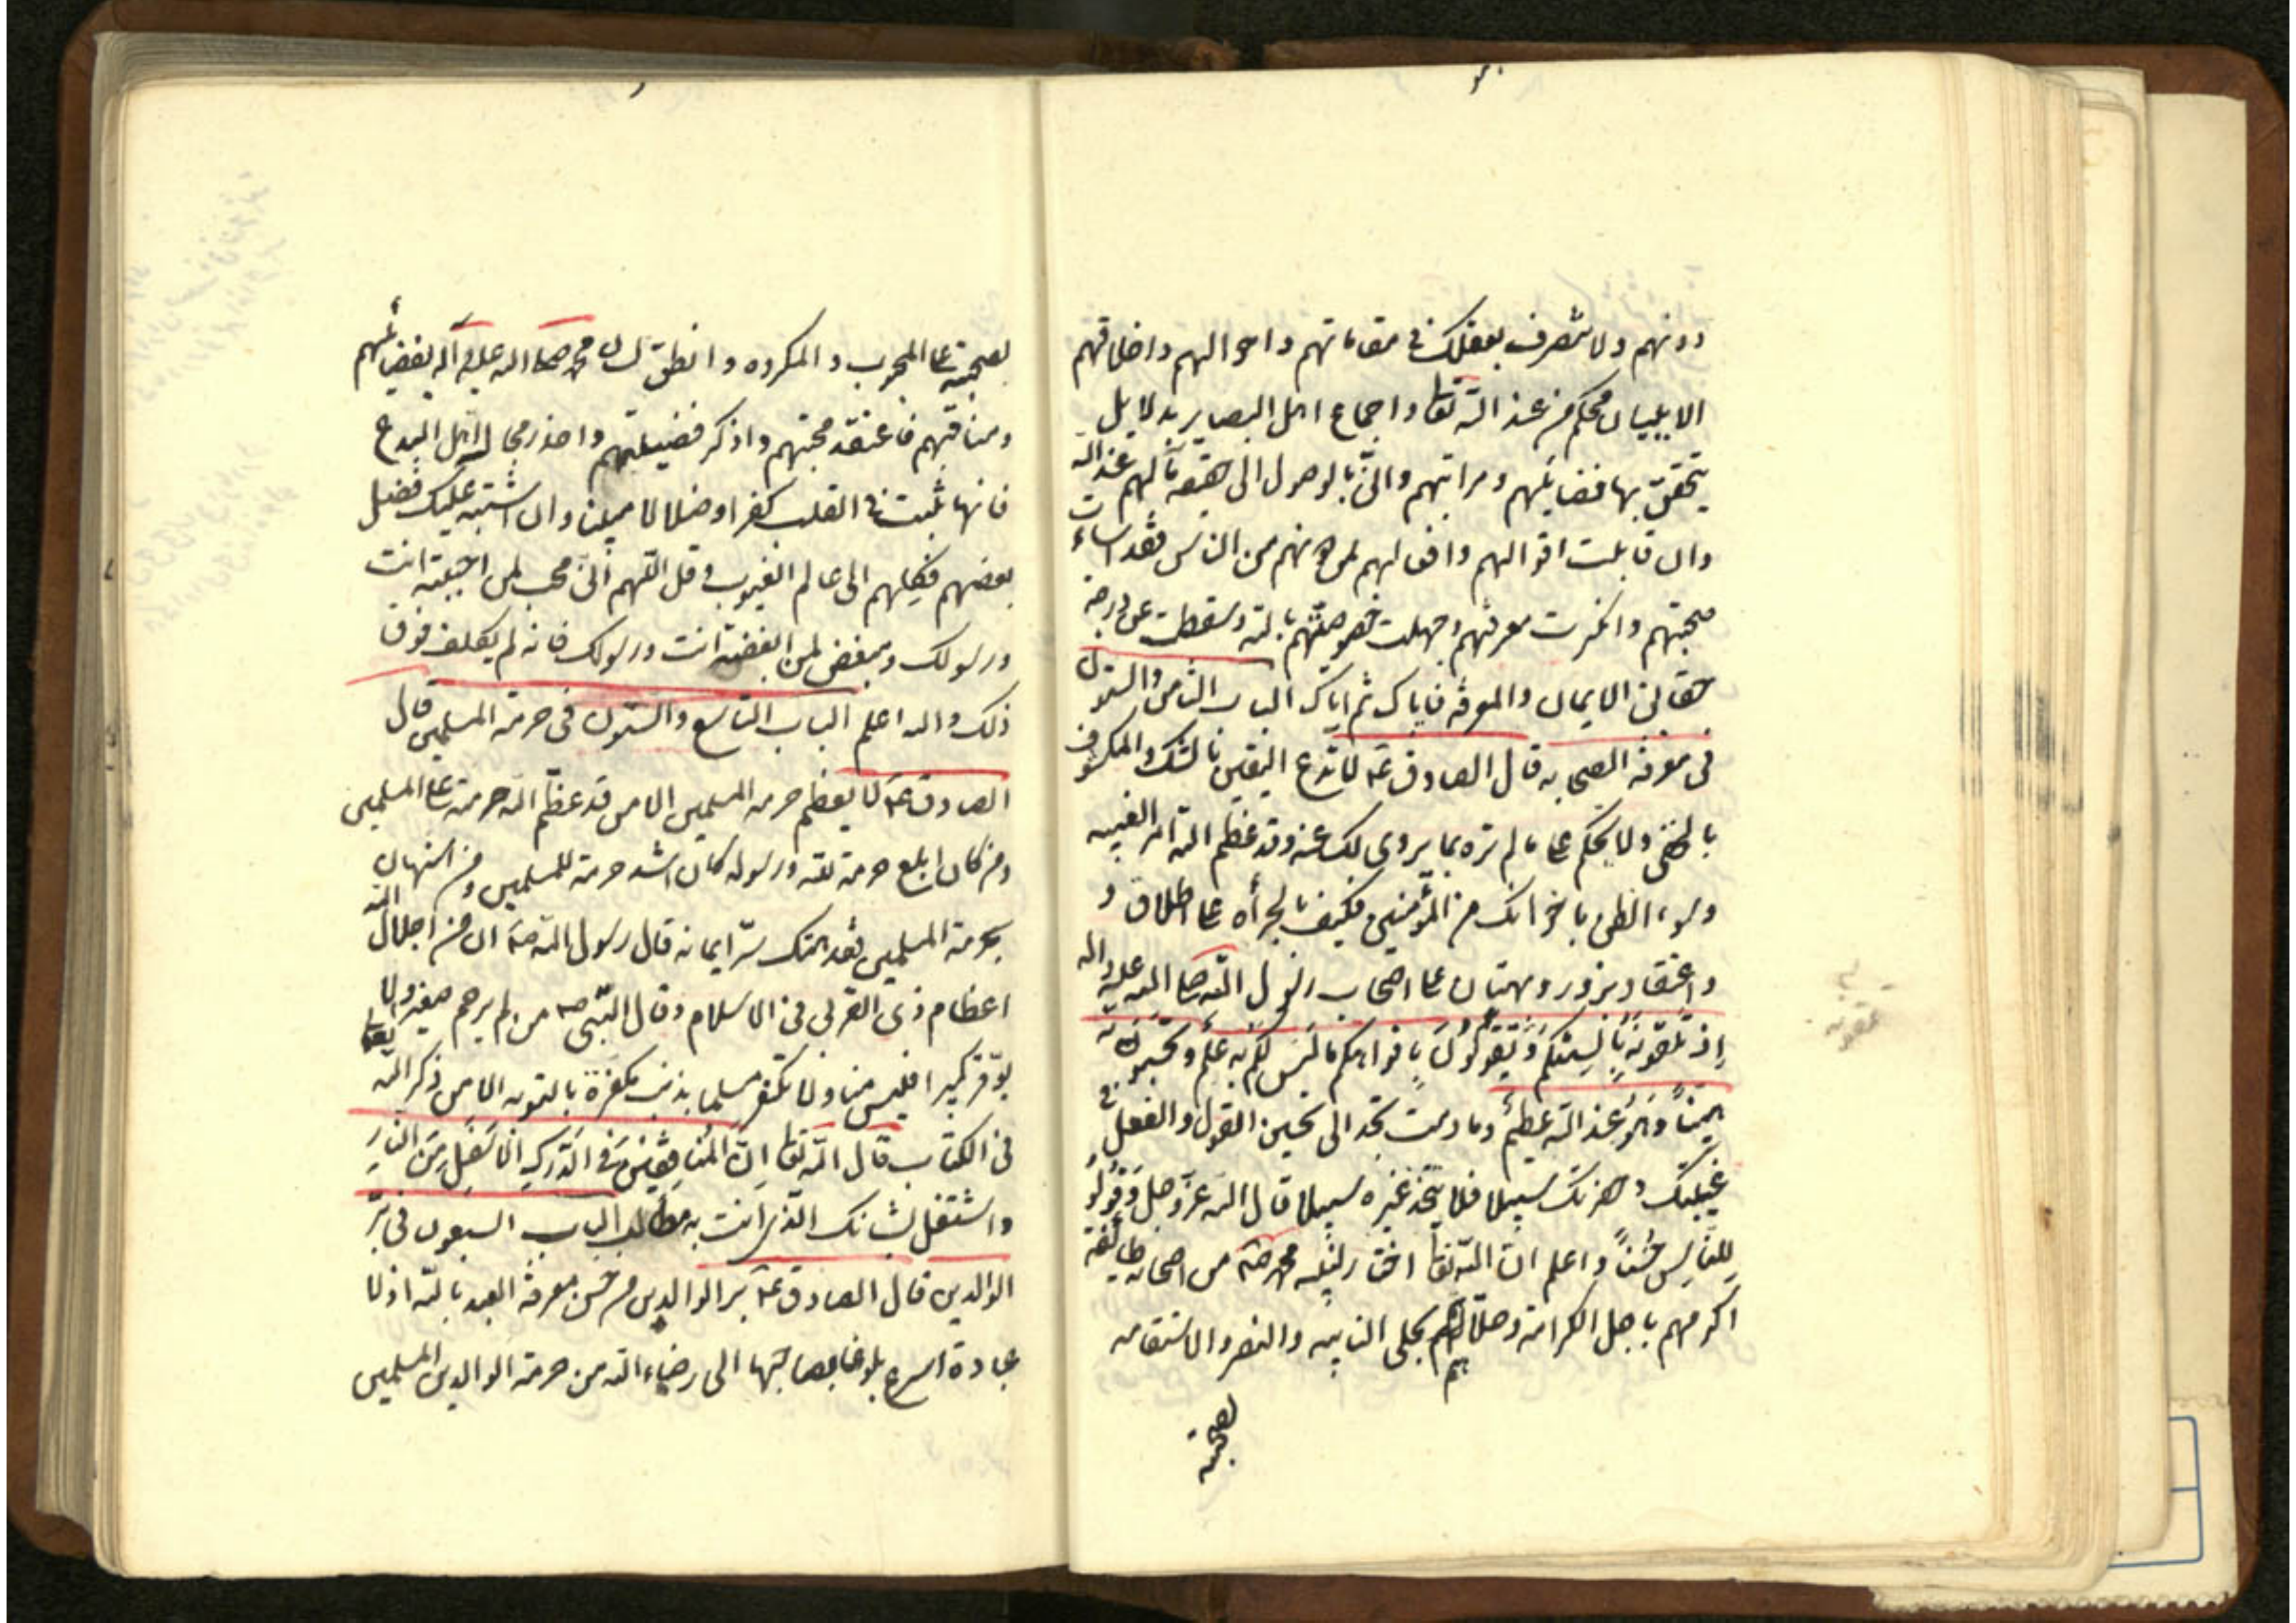 دونهم ولا تتصرف بعقلك في مقاماتهم واحوالهم واخلاقهم
الا ببيان محكم من عند الله تعا واجماع اهل البصاير بدلايل
يتحقق بها فضايلهم ومراتبهم واني بالوصول الى حقيقة مالهم عند الله
وان قابلت اقوالهم وافعالهم لمن دونهم من الناس فقد اسات
صحبتهم وانكرت معرفتهم وجهلت خصوصيتهم بالله وسقطت عن درجة
حقائق الايمان والمعرفة فاياك ثم اياك الباب الثامن والستون
في معرفة الصحابه قال الصادق عم لا تدع اليقين بالشك والمكشوف
بالخفى ولا تحكم على ما لم تره بما يروى لك عنه وقد عظم الله امر الغيبه
وسوء الظن باخوانك من المؤمنين فكيف بالجرأة على اطلاق و
واعتقاد بزور وبهتان على اصحاب رسول الله صلى الله عليه واله
إذ تلقونه بألسنتكم وتقولون بأفواهكم ما ليس لكم به علم وتحسبونه
هيناً وهو عند الله عظيم وما دمت تجد الى تحسين القول والفعل في
غيبتك وحضرتك سبيلا فلا تتخذ غيره سبيلا قال الله عز وجل وقولوا
للناس حسناً واعلم ان الله تعا اختار لنبيه محمد صم من اصحابه طايفة
اكرمهم باجل الكرامة وحلاهم بحلى التاييد والنصر والاستقامه
لصحبته
لصحبته على المحبوب والمكروه وانطق لسان محمد صلى الله عليه وآله بفضائلهم
ومناقبهم فاعتقد محبتهم واذكر فضيلتهم واحذر مجالس اهل البدع
فانها تثبت في القلب كفرا وضلالا مبينا وان اشتبه عليك فضل
بعضهم فكلهم الى عالم الغيوب وقل اللهم انى محب لمن احببته انت
ورسولك ومبغض لمن ابغضته انت ورسولك فانه لم يكلف فوق
ذلك والله اعلم الباب التاسع والستون في حرمة المسلمين قال
الصادق عم لا يعظم حرمة المسلمين الا من قد عظم الله حرمته على المسلمين
ومن كان ابلغ حرمة لله ورسوله كان اشد حرمة للمسلمين ومن استهان
بحرمة المسلمين فقد هتك ستر ايمانه قال رسول الله صم ان من اجلال الله
اعظام ذى القربى في الاسلام وقال النبي صم من لم يرحم صغيرا ولا
يوقر كبيرا فليس منا ولا تكفر مسلما بذنب يكفره بالتوبه الا من ذكر الله
في الكتاب قال الله تعا إن المنافقين في الدرك الاسفل من النار
واشتغل بشانك الذي انت به مطالب الباب السبعون في بر
الوالدين قال الصادق عم بر الوالدين من حسن معرفة العبد بالله اذ لا
عبادة اسرع بلوغا بصاحبها الى رضاء الله من حرمة الوالدين المسلمين